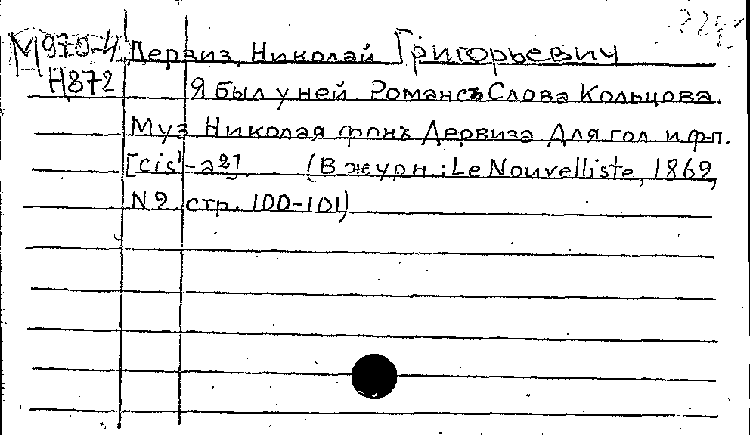 М970-4 Дервиз, Николай Григорьевич
Н872 Я был у ней Романсъ Слова Кольцова.
Муз Николая фонъ Дервиза Для гол и фп.
[cis¹-a²] (В журн.: Le Nouvelliste, 1869,
N9 стр. 100-101)